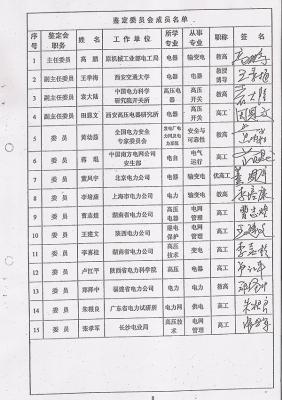 鉴定委员会成员名单
序号 鉴定会职务 姓名 工作单位 所学专业 从事专业 职称 签名
1 主任委员 高鹏 原机械工业部电工局 电器 输变电 教高
2 副主任委员 王季梅 西安交通大学 电器 电器 教授博导
3 副主任委员 袁大陆 中国电力科学研究院开关所 高压电器 高压开关 教高
4 副主任委员 田恩文 西安高压电器研究所 电器 高压开关 高工
5 委员 黄幼茹 全国电力安全专家委员会 发电厂电力网及电力系统 安全与可靠性 教高
6 委员 蒋琨 中国南方电网公司安生部 电自 电气运行 高工
7 委员 董凤宇 北京电力公司 电力 输变电 教高工
8 委员 李培康 上海市电力公司 电力 输变电 教高
9 委员 曹志煌 湖南省电力公司 高压电器 电网管理 高工
10 委员 王建文 陕西电力公司 继电保护 电网管理 高工
11 委员 李喜桂 湖南省电力公司 高压技术 变电 高工
12 委员 卢江平 陕西省电力科学院 高压 电器 高工
13 委员 郑泽中 福建省电力公司 电力 电力 高工
14 委员 朱根良 广东省电力试研所 电力网 供电 高工
15 委员 张孝军 长沙电业局 高压技术 电网管理 高工